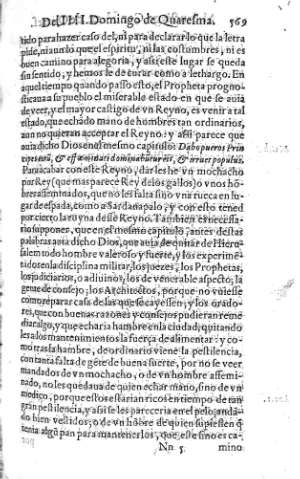 Del IIII. Domingo de Quaresma. 569
tido para hazer caso del, ni para declararlo que la letra
pide, ni aun lo que el espiritu, ni las costumbres, ni es
buen camino para alegoria, y assi este lugar se queda
sin sentido, y hemosle de curar como a lethargo. En
aquel tiempo quando passo esto, el Propheta prognosticaua
a su pueblo el miserable estado en que se auia
de ver, y el mayor castigo de vn Reyno, es venir a tal
estado, que echãdo mano de hombres tan ordinarios,
aun no quieran acceptar el Reyno: y assi parece que
auia dicho Dios en el mesmo capitulo: Dabo pueros Prin
cipes eorũ, & effœminati dominabuntur eis, & irruet populus.
Para acabar con este Reyno, darles he vn mochacho
por Rey (que mas parece Rey de los gallos) o vnos hõbres
afeminados, que no les falta sino vna rueca en lugar
de espada, como a Sardanapalo: y con esto tened
por cierto la ruyna desse Reyno. Tambien es necessario
suppones, que en el mesmo capitulo, antes destas
palabras auia dicho Dios, que auia de quitar de Hierusalem
todo hombre valeroso y fuerte, y los experimẽtados
en la disciplina militar, los juezes, los Prophetas,
los judiciarios, o adiuinos, los de venerable aspecto, la
gente de consejo, los Architectos, porque no vuiesse
como reparar casa de las que se cayessen: y los oradores,
que con buenas razones y consejos pudieran remediar
algo, y que echaria hambre en la ciudad, quitando
a los mantenimientos la fuerça de alimentar: y como
tras la hambre, de ordinario viene la pestilencia,
con tanta falta de gẽte de buena suerte, por no se ver
mandados de vn mochacho, o de vn hombre afeminado,
no les quedaua de quien echar mano, sino de vn
medico, porque estos estarian ricos en tiempo de tan
gran pestilencia, y assi se les pareceria en el pelo, andãdo
bien vestidos, o de vn hõbre de quien supiessen q̃
tenia algũ pan para mantenerlos, que este sino es ca-
Nn 5 mino